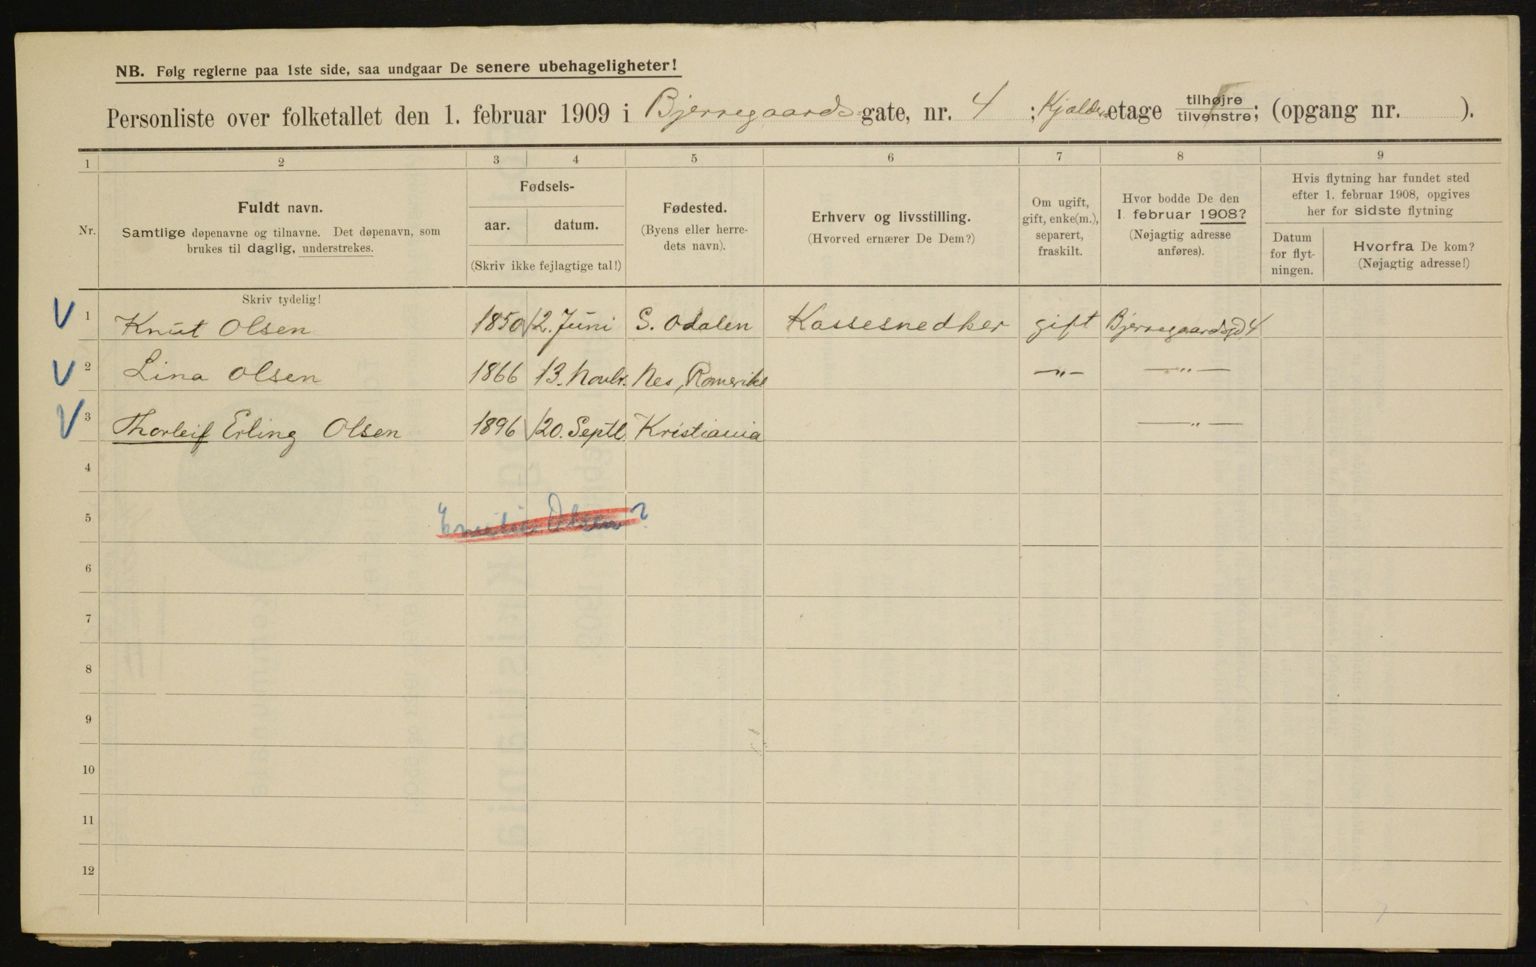 NB. Følg reglerne paa 1ste side, saa undgaar De senere ubehageligheter!
Personliste over folketallet den 1. februar 1909 i Bjerregaards gate, nr. 4 ; Kjelder etage tilhøjre tilvenstre; (opgang nr. ).
1 2 3 4 5 6 7 8 9
Nr.
Fuldt navn.
Samtlige døpenavne og tilnavne. Det døpenavn, som
brukes til daglig, understrekes.
Fødsels-
aar. datum.
(Skriv ikke fejlagtige tal!)
Fødested.
(Byens eller herre-
dets navn).
Erhverv og livsstilling.
(Hvorved ernærer De Dem?)
Om ugift,
gift, enke(m.),
separert,
fraskilt.
Hvor bodde De den
1. februar 1908?
(Nøjagtig adresse
anføres).
Hvis flytning har fundet sted
efter 1. februar 1908, opgives
her for sidste flytning
Datum
for flyt-
ningen.
Hvorfra De kom?
(Nøjagtig adresse!)
Skriv tydelig!
V 1 Knut Olsen 1850 12. Juni S. Odalen Kassesnedker gift Bjerregaardsgd 4
V 2 Lina Olsen 1866 13. Novbr. Nes, Romerike —„— —„—
V 3 Thorleif Erling Olsen 1896 20. Septb. Kristiania —„—
4
5 Emilie Olsen ?
6
7
8
9
10
11
12